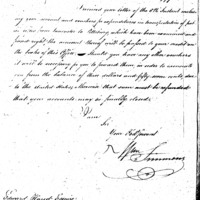 I received your letter of the 8th Instant enclosing
your account and vouchers for expenditures in transportation of
from Lancaster to Pittsburg, which have been examined and
found right, the amount thereof will be passed to your credit on
the books of this Office. Should you have any other vouchers
it will be necessary for you to forward them, in order to account
for the balance of three dollars and fifty seven cents, due
to the United States, otherwise that sum must be refunded
that your accounts may be finally closed.
I am
Sir
Your Obt Servant
Wm Simmons
Edward Hand Esquire